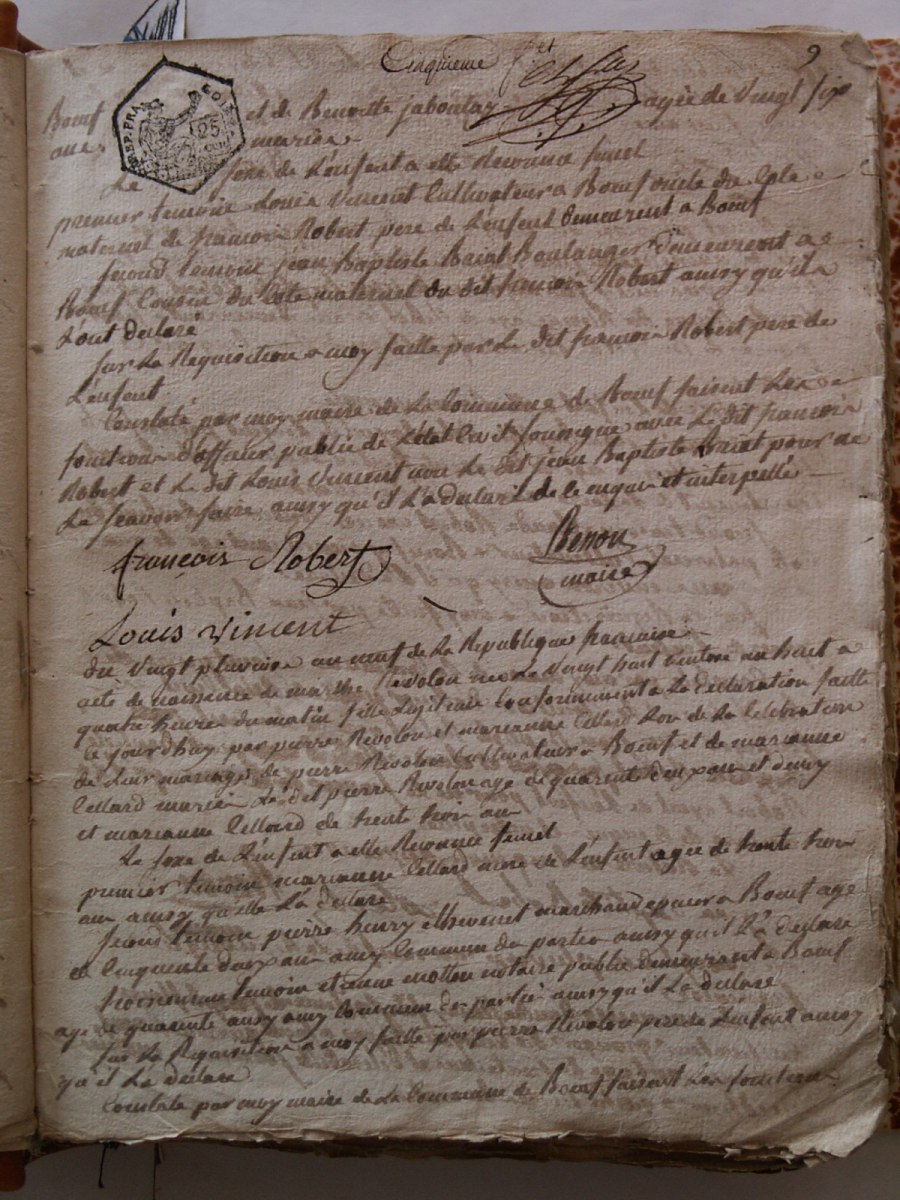 Cinquieme f et
9
REP. FRA. LOIRE 25 CEN
Bœuf et de Benoitte jaboulay agée de Vingt six
ans mariés
Le sexe de L'enfant a eté Reconnu femel
premier temoin Louis Vincent Cultivateur a Bœuf oncle du Cote
maternel de françois Robert pere de L'enfant demeurent a Bœuf
second temoin jean Baptiste Boulanger demeurent a
Bœuf Cousin du Cote maternel du dit françois Robert ainsy qu'ils
L'ont declaré
sur La Requisition a moy faitte par Le dit françois Robert pere de
L'enfent
Constaté par moy maire de La Commune de Bœuf faisent Les
fonction d'officier public de L'etat Civil soussigné avec Le dit françois
Robert et Le dit Louis Vincent non Le dit jean Baptiste pour ne
Le scavoir faire ainsy qu'il L'a declaré de le enquis et interpellé
françois Robert
Benon
maire
Louis vincent
du Vingt pluviose an neuf de La Republique francaise
acte de naissance de marthe Revolou née le Vingt huit ventose an huit a
quatre heure du matin fille Legitime Conformement a La declaration faitte
ce jourdhuy par pierre Revolou et marianne Cellard Lor de La Celebration
de Leur mariage de pierre Revolou Cultivateur a Bœuf et de marianne
Cellard mariés Le dit pierre Revolou agé de quarente deux ans et demy
et marianne Cellard de trente trois ans
Le sexe de L'enfent a eté Reconnu femel
premier temoin marianne Cellard mere de L'enfent agée de trente trois
ans ainsy qu'elle L'a declaré
second temoin pierre henry thevenet marchand epicier a Bœuf age
de Cinquente deux ans amy Commun des parties ainsy qu'il L'a declaré
troisieme temoin etienne mottou notaire public demeurant a Bœuf
age de quarente ans amy Commun des parties ainsy qu'il La declaré
sur La Requisition a moy faitte par pierre Revolou pere de L'enfent ainsy
qu'il L'a declaré
Constaté par moy maire de La Commune de Bœuf faisent Les fonction